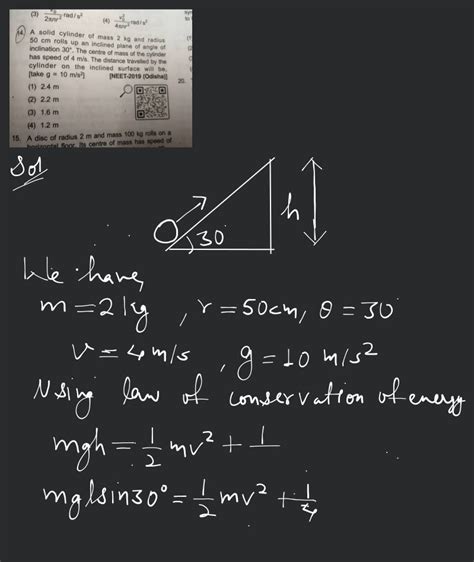 (3) rad/s²
(4) rad/s²
14. A solid cylinder of mass 2 kg and radius
50 cm rolls up an inclined plane of angle of
inclination 30°. The centre of mass of the cylinder
has speed of 4 m/s. The distance travelled by the
cylinder on the inclined surface will be,
[take g = 10 m/s²] [NEET-2019 (Odisha)]
(1) 2.4 m
(2) 2.2 m
(3) 1.6 m
(4) 1.2 m
20.
15. A disc of radius 2 m and mass 100 kg rolls on a
horizontal floor. Its centre of mass has speed of
Sol
30
h
We have,
m = 2 kg , r = 50cm, θ = 30°
v = 4 m/s , g = 10 m/s²
Using law of conservation of energy
mgh = 1/2 mv² + 1
mglsin30° = 1/2 mv² + 1/4